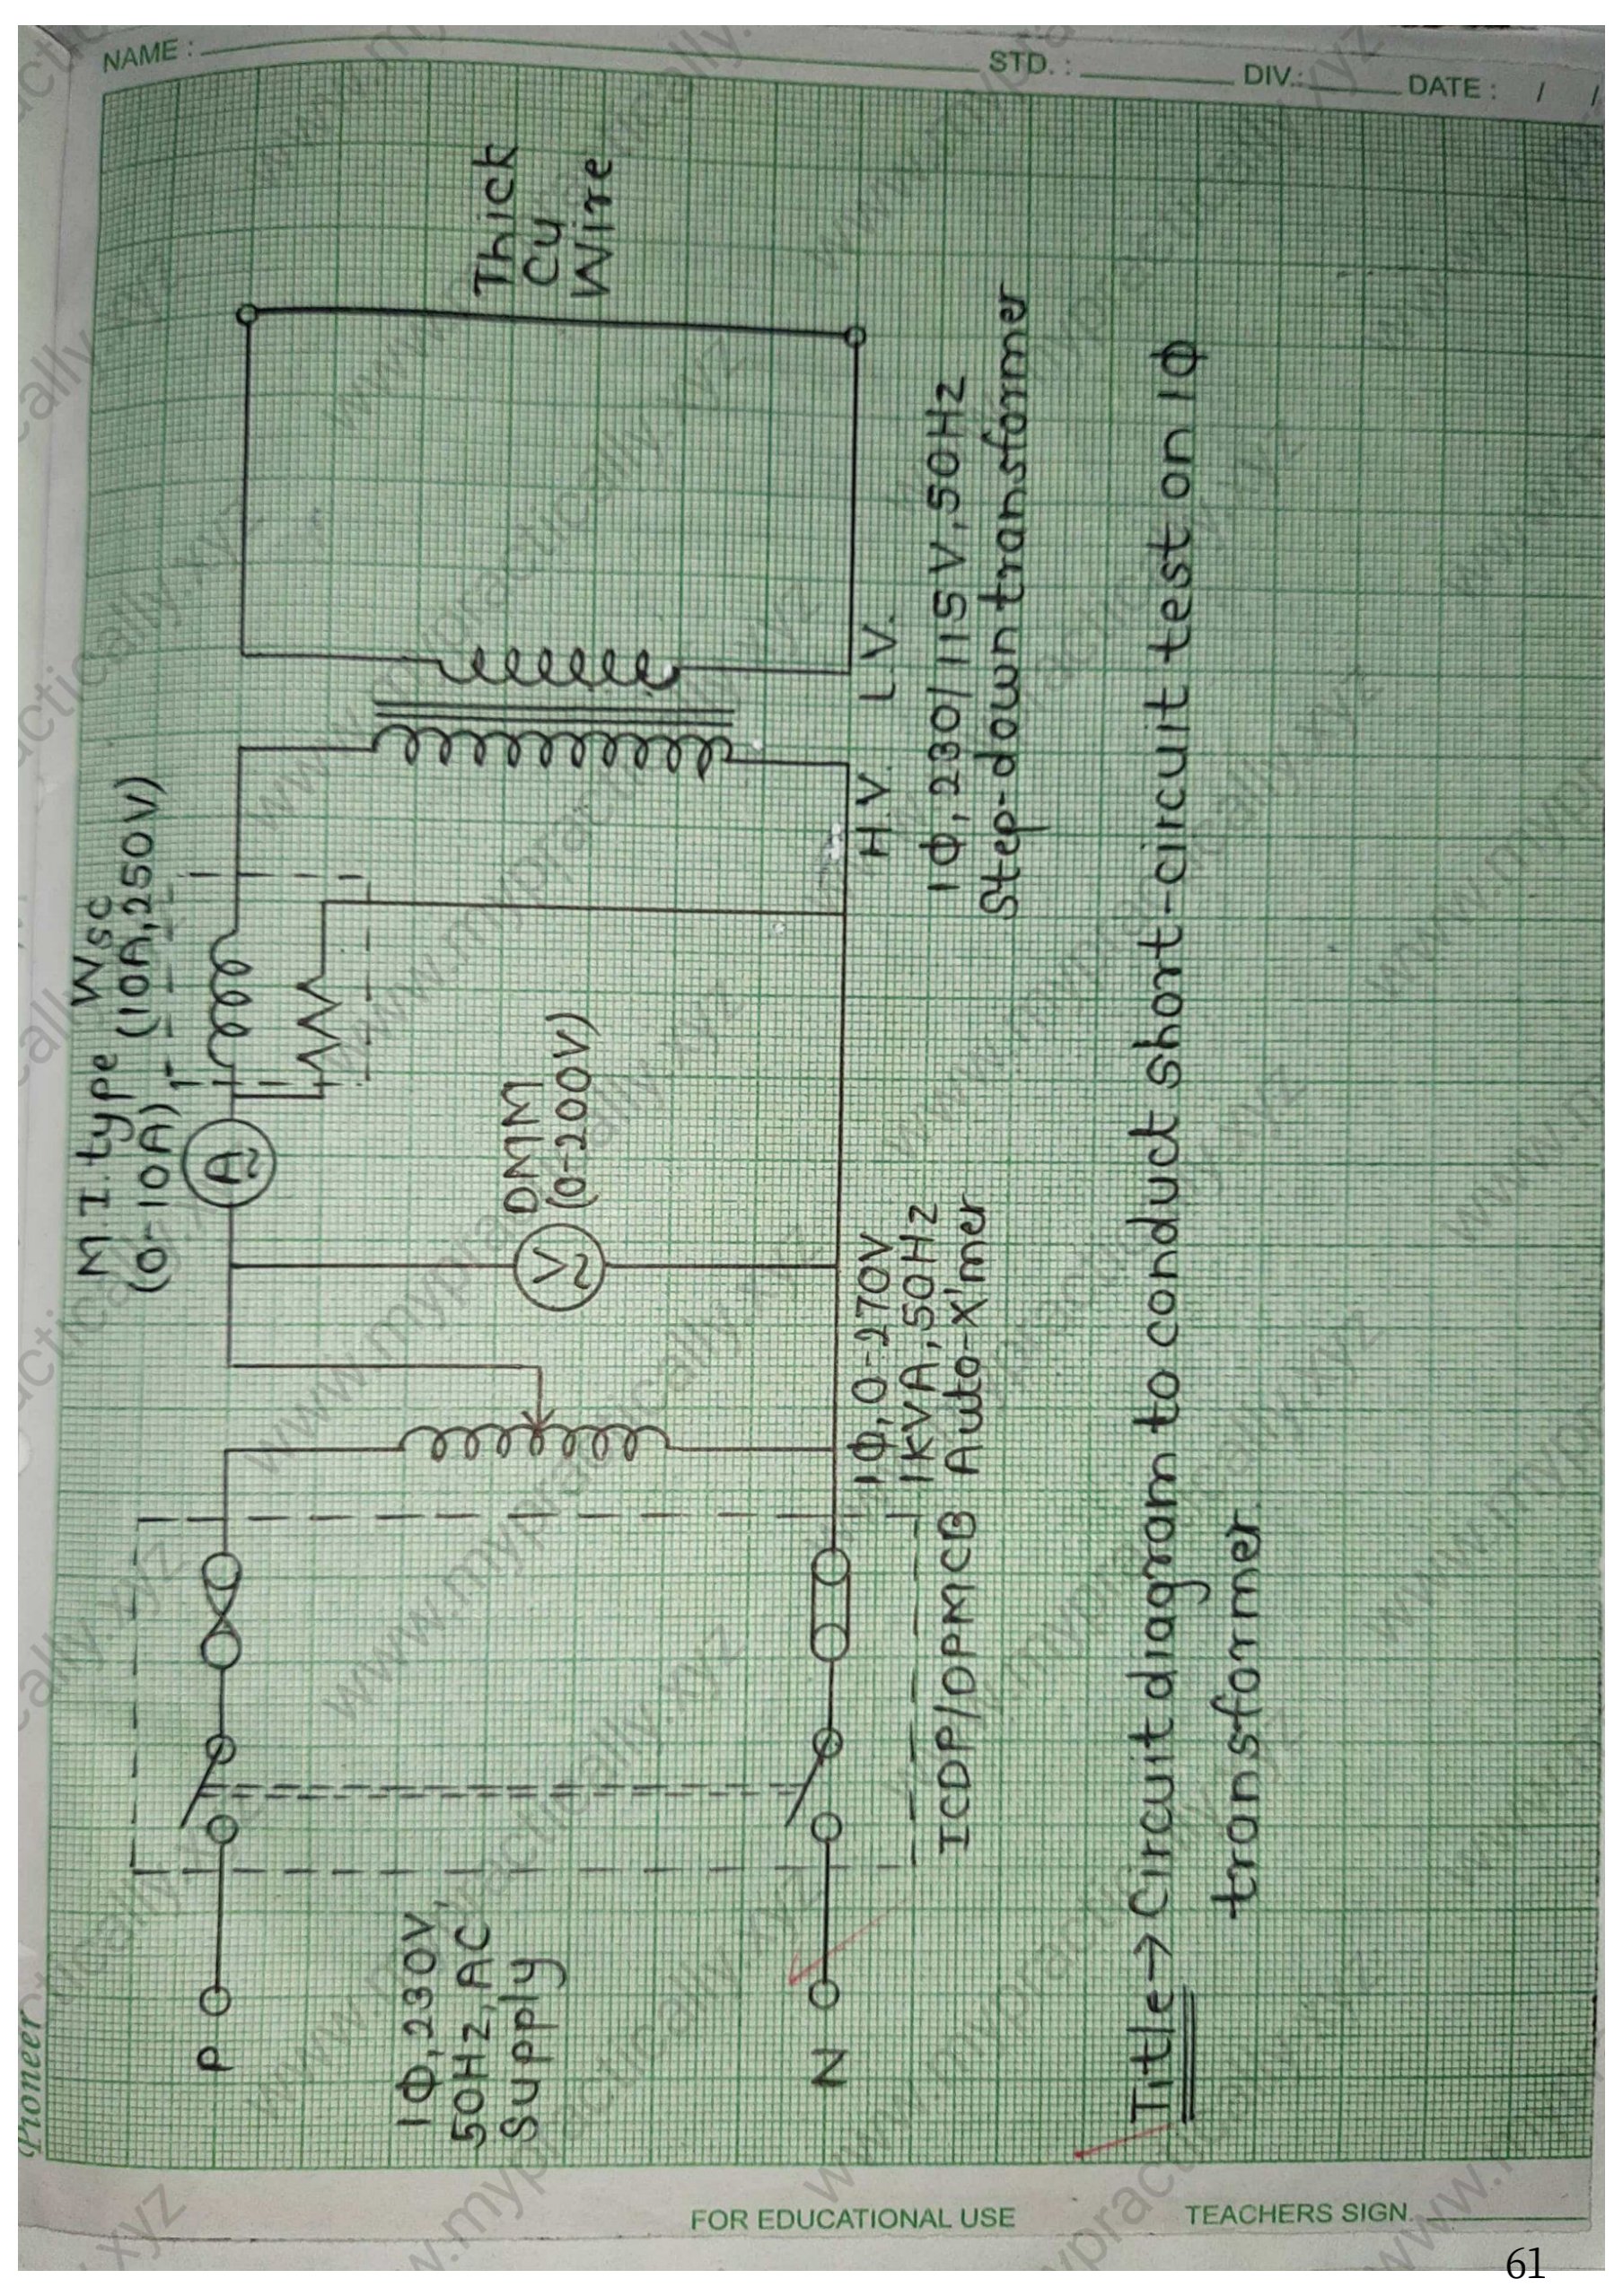 NAME :
STD. :
DIV.:
DATE : / /
Pioneer
M.I. type
(0-10A)
Wsc
(10A,250V)
A
P
1Φ,230V,
50Hz,AC
Supply
V
DMM
(0-200V)
Thick
Cu
Wire
N
ICDP/DPMCB
1Φ,0-270V
1KVA,50Hz
Auto-X'mer
H.V. L.V.
1Φ,230/115V,50Hz
Step-down transformer
Title→Circuit diagram to conduct short-circuit test on 1Φ
transformer.
FOR EDUCATIONAL USE
TEACHERS SIGN.
61
www.mypractically.xyz